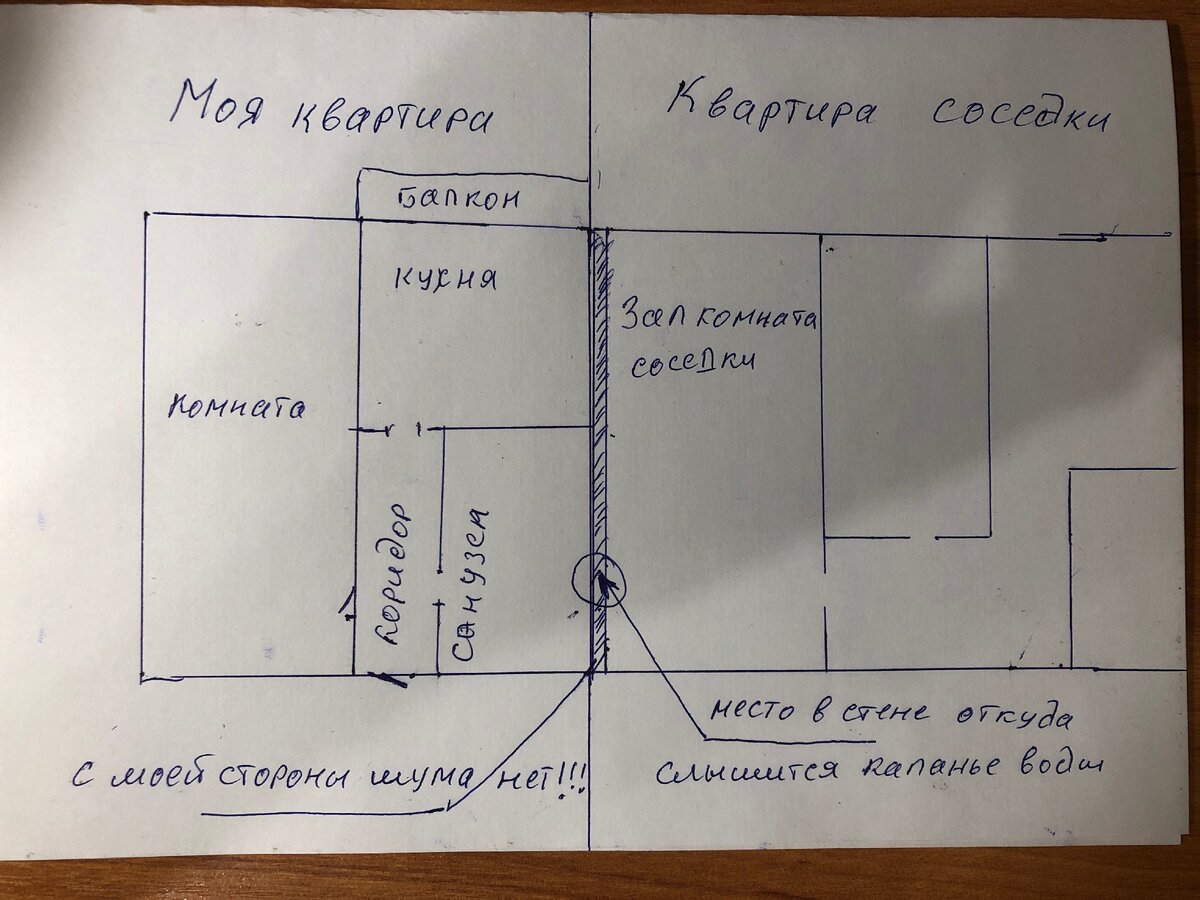 Моя квартира
Квартира соседки
Балкон
кухня
Зал комната
соседки
комната
коридор
санузел
место в стене откуда
слышится капанье воды
с моей стороны шума нет!!!